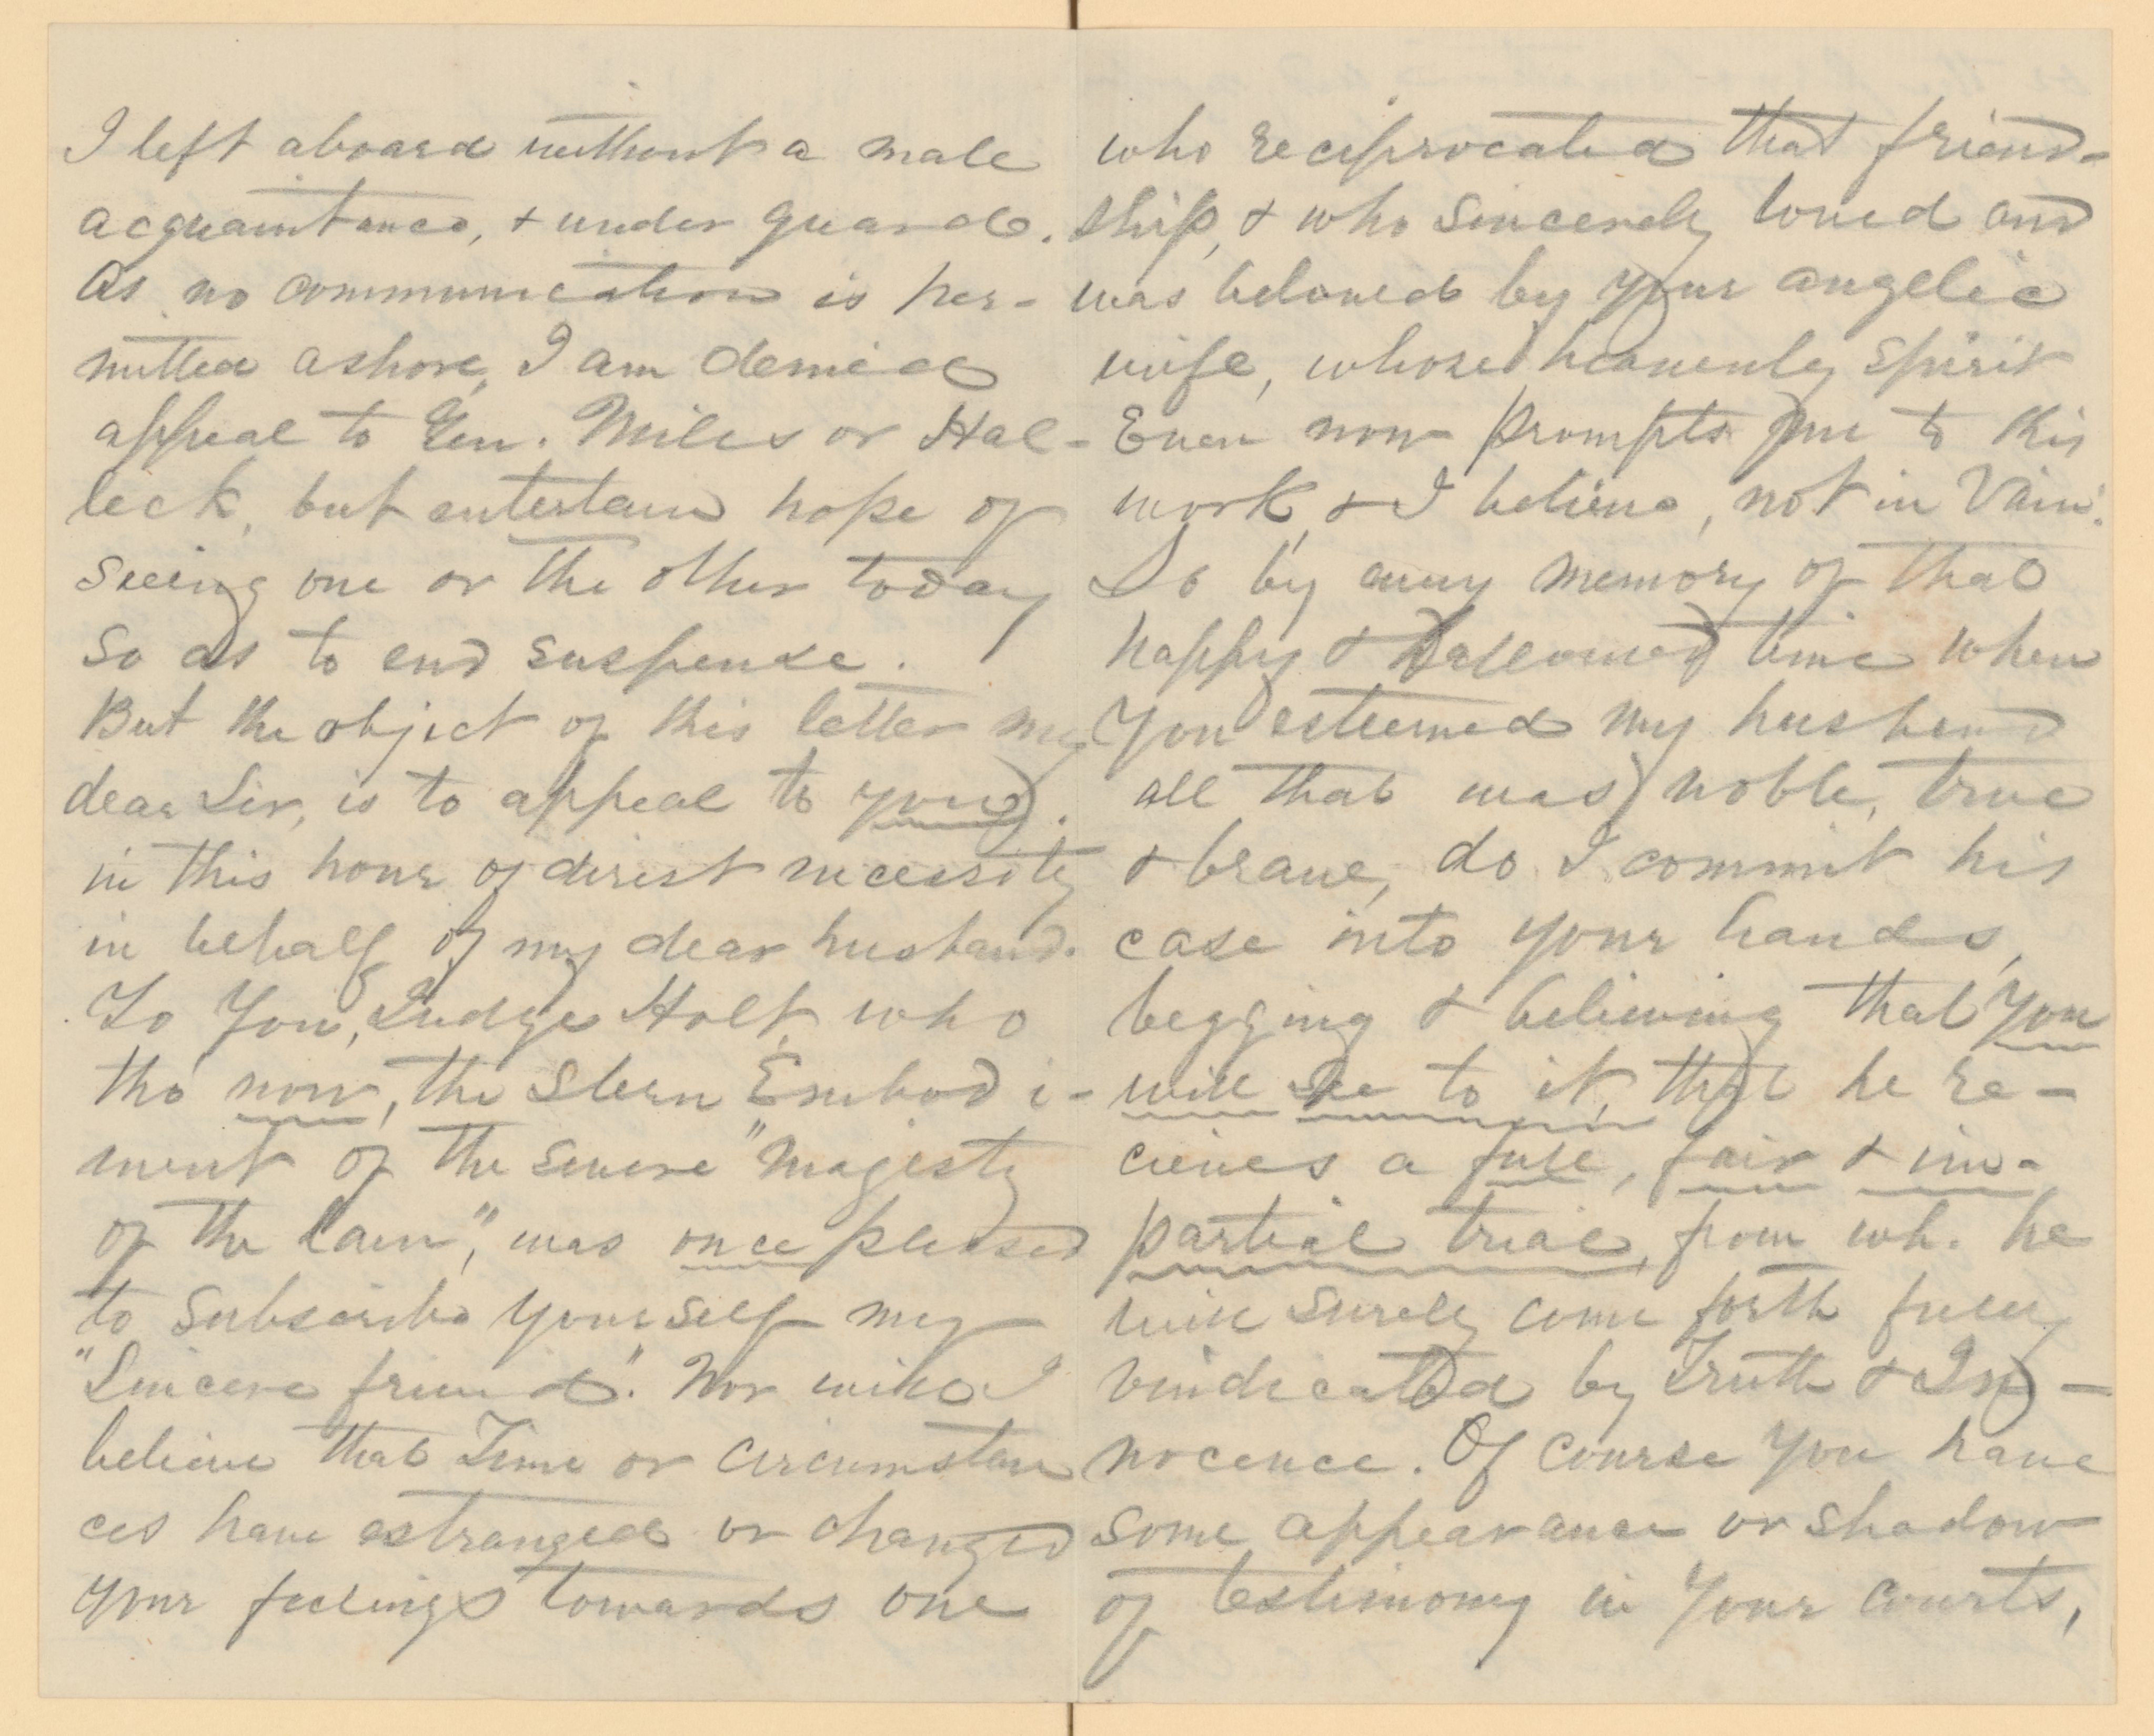 I left aboard without a male
acquaintance, & under guard.
As no communication is per-
mitted ashore, I am denied
appeal to Gen. Miles or Hal-
leck, but entertain hope of
seeing one or the other today
so as to end suspense.
But the object of this letter my
dear Sir, is to appeal to you.
in this hour of direst necessity
in behalf of my dear husband.
To You, Judge Holt, who
tho' now, the stern Embodi-
ment of the severe "Majesty
of the Law", was once pleased
to subscribe yourself my
"Sincere friend". Nor will I
believe that Time or circumstan
ces have estranged or changed
your feelings towards one
who reciprocated that friend-
ship, & who sincerely loved and
was beloved by your angelic
wife, whose heavenly spirit
Even now prompts me to this
work, & I believe, not in vain!
So by every memory of that
happy & Hallowed time when
You esteemed my husband
all that was noble, true
& brave, do I commit his
case into your hands,
begging & believing that You
will see to it, that he re-
cieves a full, fair & im-
partial trial, from wh. he
will surely come forth fully
vindicated by Truth & In-
nocence. Of course you have
some appearance or shadow
of testimony in your courts,